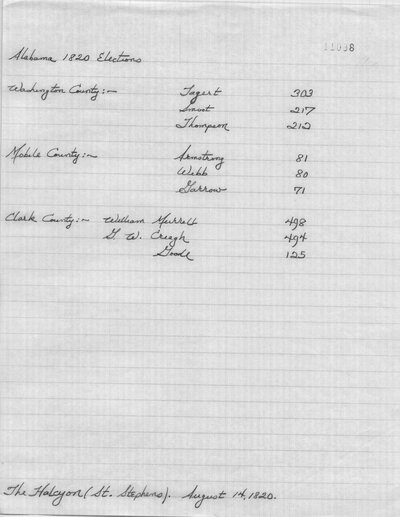 11098
Alabama 1820 Elections
Washington County:~ Tagert 303
Smoot 217
Thompson 212
Mobile County:~ Armstrong 81
Webb 80
Garrow 71
Clark County:~ William Murrell 498
G. W. Creagh 494
Goode 125
The Halcyon (St. Stephens). August 14, 1820.